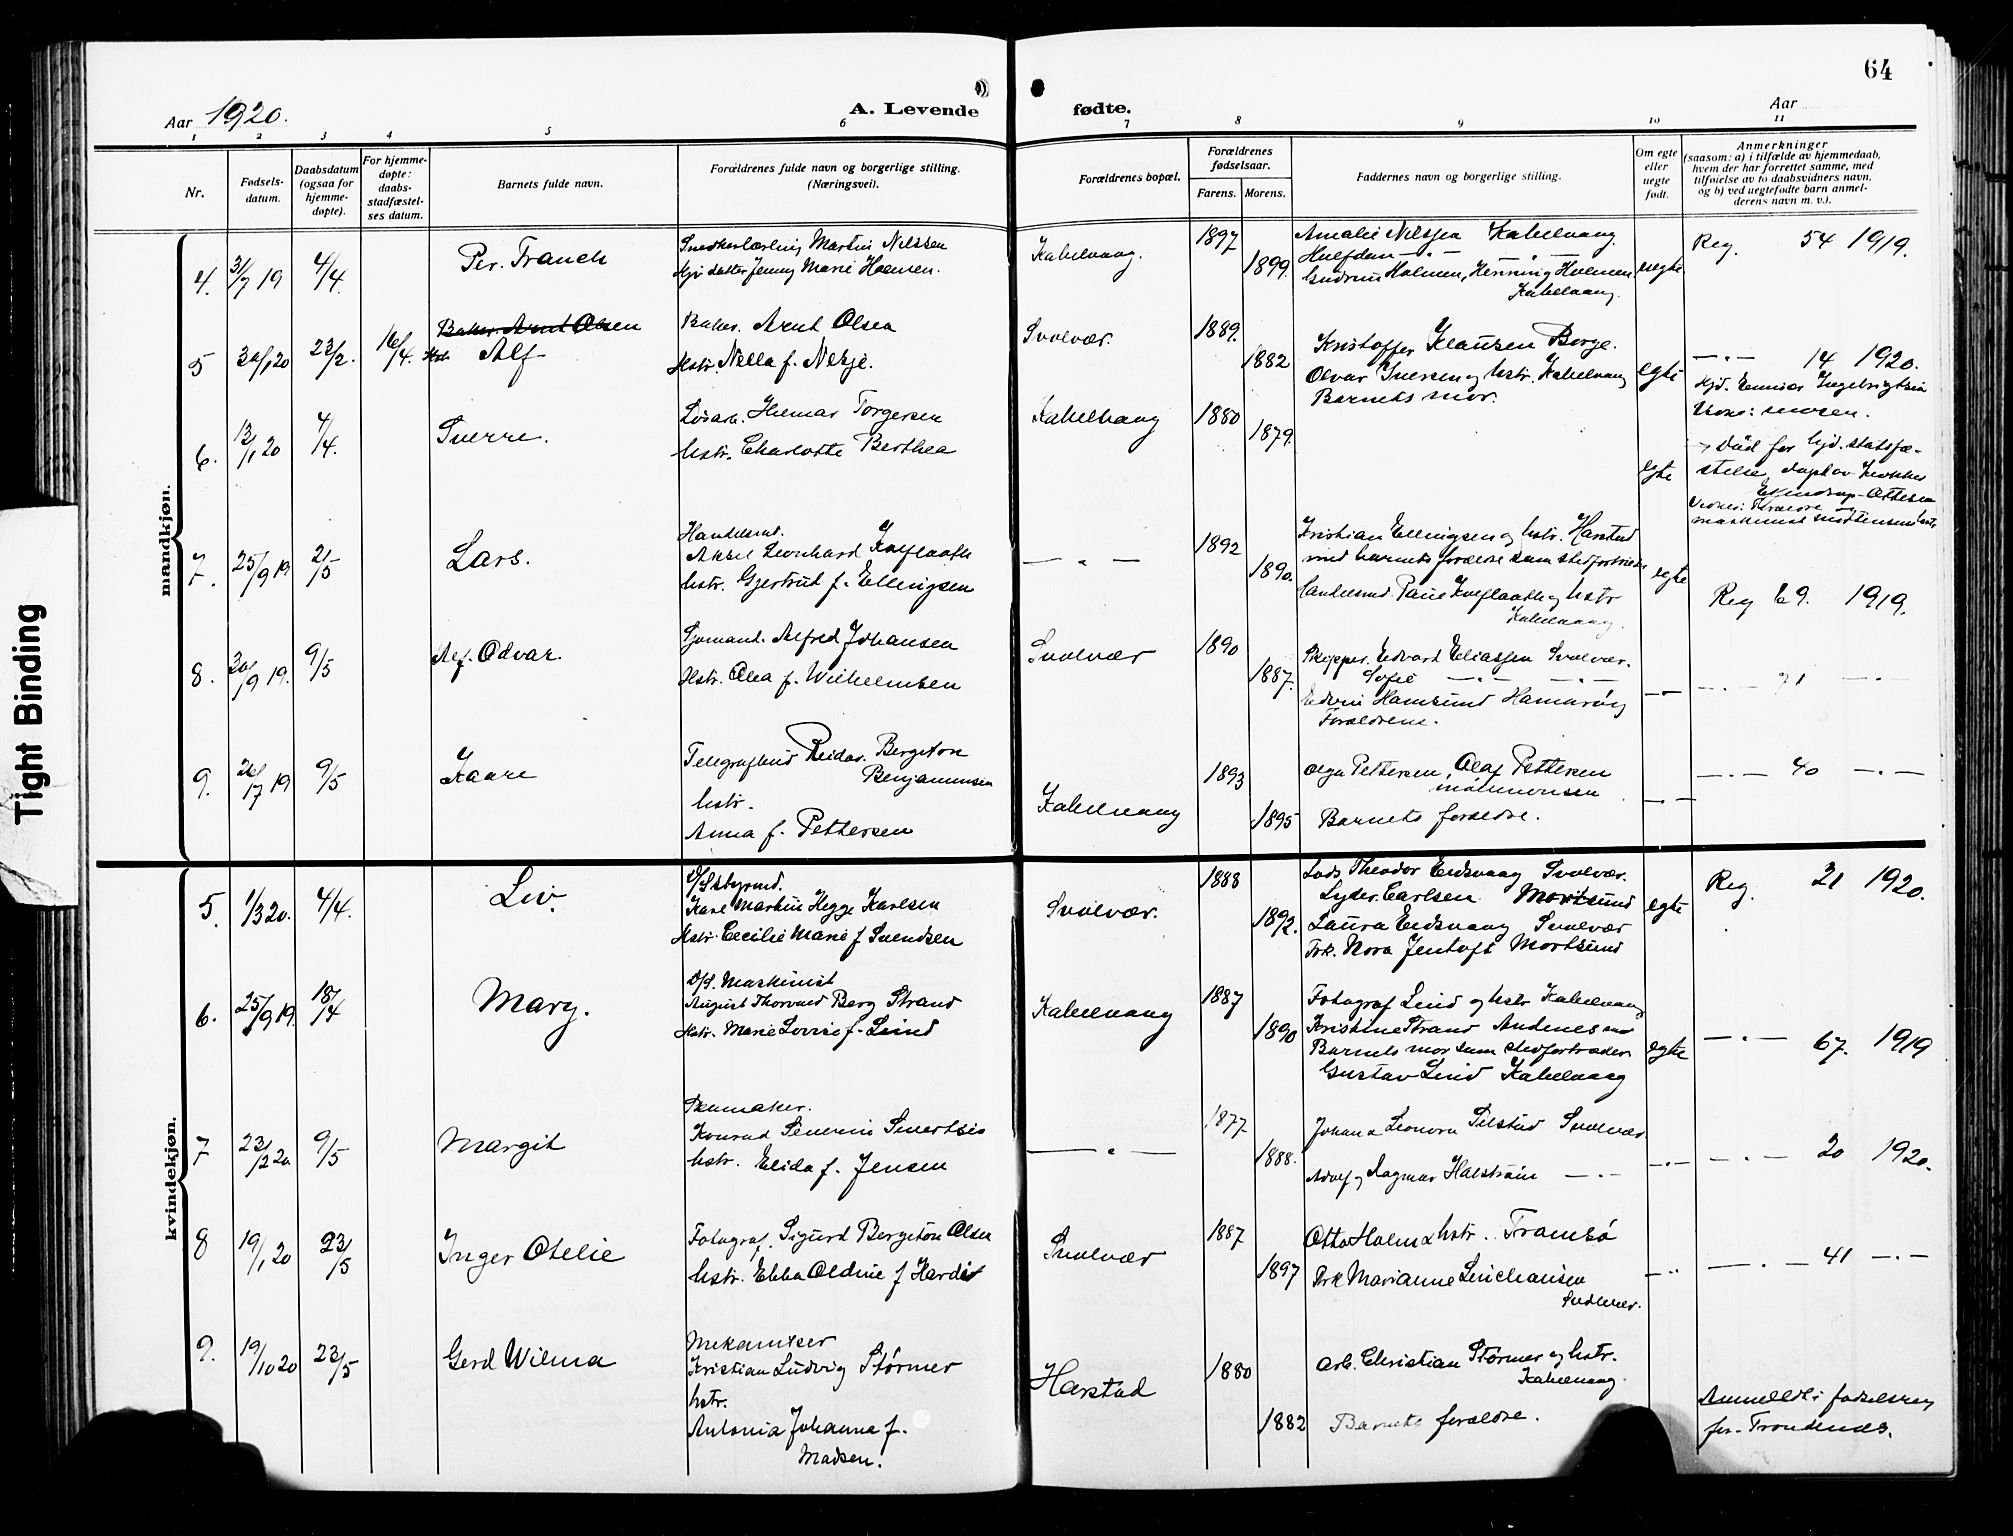 64
Aar 1920.
A. Levende fødte.
Aar
1 2 3 4 5 6 7 8 9 10 11
Nr.
Fødsels-
datum.
Daabsdatum
(ogsaa for
hjemme-
døpte).
For hjemme-
døpte:
daabs-
stadfæstel-
ses datum.
Barnets fulde navn.
Forældrenes fulde navn og borgerlige stilling.
(Næringsvei).
Forældrenes bopæl.
Forældrenes
fødselsaar.
Farens. Morens.
Faddernes navn og borgerlige stilling.
Om egte
eller
uegte
født.
Anmerkninger
(saasom: a) i tilfælde av hjemmedaab,
hvem der har forrettet samme, med
tilføielse av to daabsvidners navn,
og b) ved uegtefødte barn anmel-
derens navn m. v.).
mandkjøn.
4. 31/7 19 4/4. Per. Tranch
Snedkerlærling Martin Nilssen
datter Jenny Marie Holmen.
Kabelvaag. 1897 1899.
Amalie Nilssen Kabelvaag.
Halfdan — " — — " —
Gudrun Holmen, Henning Holmen
Kabelvaag.
uegte
Reg. 54 1919.
5 30/1 20 23/2. 16/4.
Baker. Arnt Olsen
Alf
Baker. Arnt Olsen
Hstr. Nella f. Nesje.
Svolvær. 1889. 1882
Kristoffer Klausen Borge.
Olvar Iversen og hstr. Kabelvaag
Barnets mor.
egte
— " — 14 1920.
Hjd. Ingebrigtsen
6. 13/1 20 4/4. Sverre.
Løsarb. Hilmar Torgersen
hstr. Charlotte Berthea
Kabelvaag 1880 1879.
egte
Død før hjd. stadfæ-
stelse,
7. 25/9 19 2/5 Lars.
Handelsmd.
Aksel Leonhard Kolflaath
hstr. Gjertrud f. Ellingsen
— " — 1892 1890.
Kristian Ellingsen og hstr. Harstad
med barnets forældre som stedfortræder
Handelsmd. Paul Kolflaath og hstr
Kabelvaag.
egte
Reg 69. 1919.
8. 30/9 19. 9/5 Alf. Odvar.
Sjømand. Alfred Johansen
Hstr. Olea f. Wilhelmsen
Svolvær 1890 1887.
Skipper. Edvard Eliassen Svolvær.
Sofie — " — — " —
Edvin Hamsund Hamarøy
Forældrene.
— " — — " — 71 — " —
9. 26/7 19 9/5 Kaare
Telegrafbud Reidar. Bergiton
Benjaminsen
hstr.
Anna f. Pettersen
Kabelvaag 1893 1895
Olga Pettersen, Olaf Pettersen
Barnets forældre.
— " — — " — 40 — " —
kvindekjøn.
5. 1/3 20. 4/4. Liv.
D/Sstyrmd.
Karl Martin Hegge Karlsen
Hstr. Cecilie Marie f Svendsen
Svolvær. 1888 1892.
Lods Theodor Eidsvaag Svolvær.
Lyder. Carlsen Mortsund
Laura Eidsvaag Svolvær
Frk. Nora Jentoft Mortsund
egte
Reg. 21 1920.
6. 25/9 19. 18/4 Mary.
D/S. Maskinist
August Thorvald Berg Strand
Hstr. Marie Lovise f. Lind
Kabelvaag 1887 1890
Fotograf Lind og hstr Kabelvaag
Kristine Strand Andenes
Barnets mor som stedfortræder
Gustav Lind Kabelvaag
egte
— " — 67. 1919
7 23/2 20 9/5 Margit
Skomaker.
Konrad Severin Sivertsen
hstr. Elida f. Jensen
— " — 1877 1888.
Johan Leonora Svolvær.
Adolf og Dagmar Halstrøm — " —
— " — — " — 20 1920.
8 19/1 20 23/5 Inger Otelie
Fotograf. Sigurd Bergiton Olsen
hstr. Ebba Oldine f
Svolvær 1887 1897
Otto Holm & hstr. Tromsø
Frk Marianne
Svolvær.
— " — — " — 41 — " —
9. 19/10 20 23/5 Gerd Wilma
Mekaniker
Kristian Ludvig Størmer
hstr.
Antonia Johanna f.
Madsen.
Harstad 1880 1882
Arb. Christian Størmer og hstr.
Kabelvaag.
Barnets forældre.
Anmeldt i fødselsreg
for. Trondenes.
Tight Binding